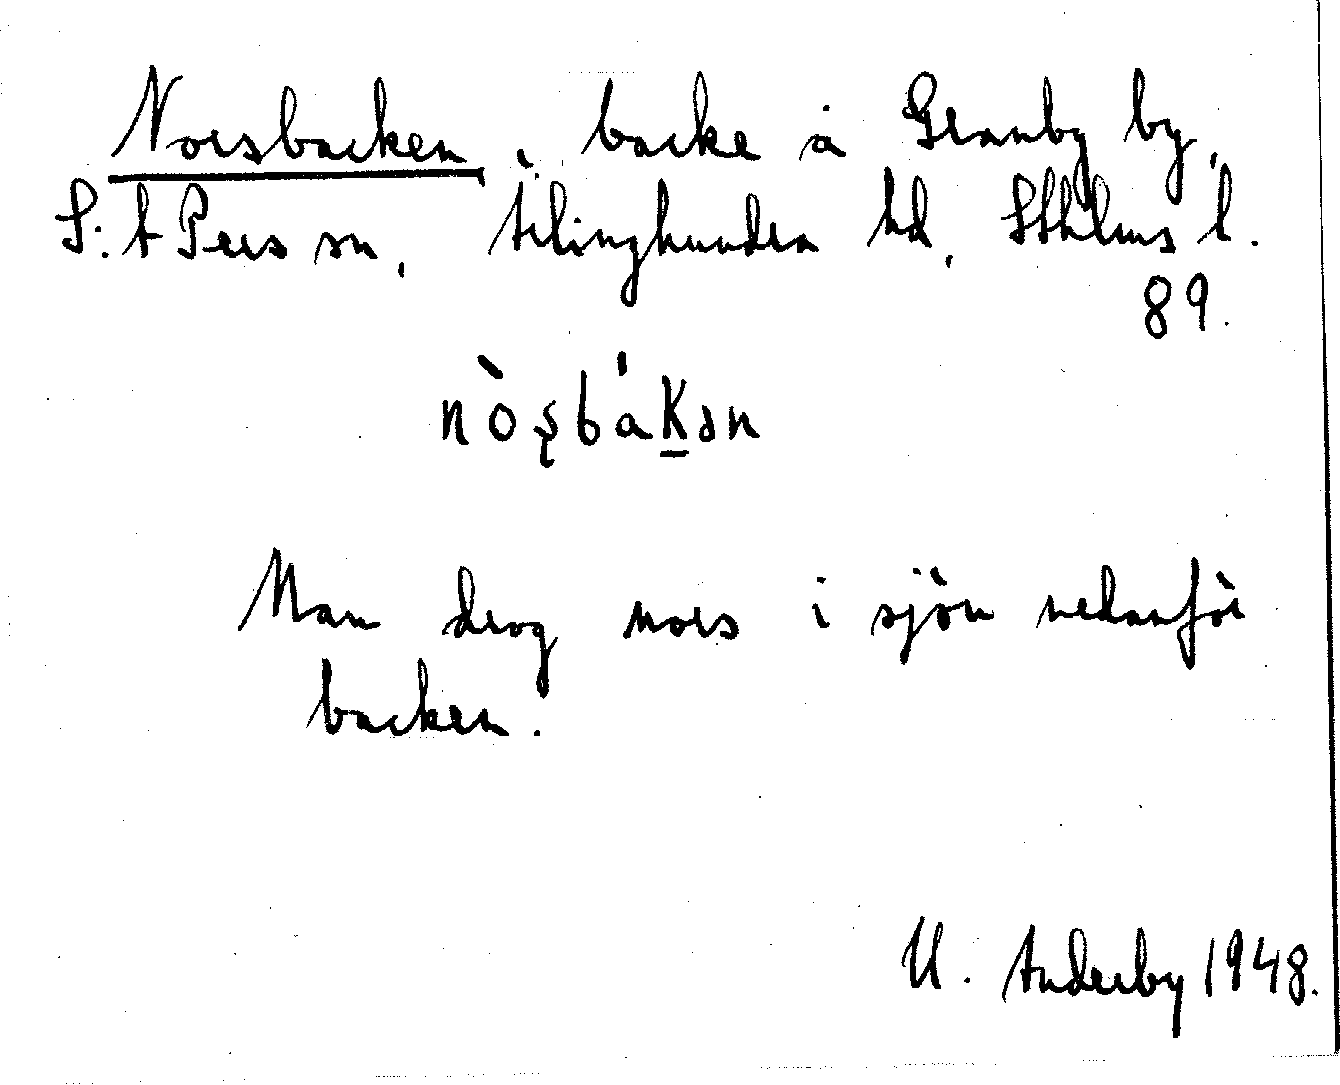 Norsbacken, backe å Granby by,
S:t Pers sn, Ärlinghundra hd, Sthlms l.
89.
nòʂbakən
Man drog nors i sjön nedanför
backen.
U. Anderby 1948.